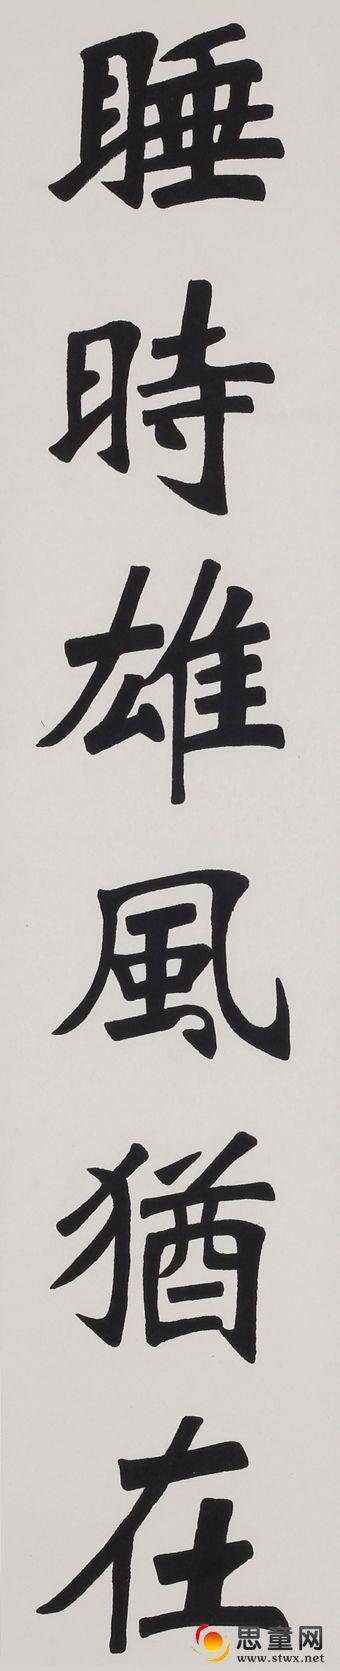 睡時雄風猶在
思童网
www.stwx.net